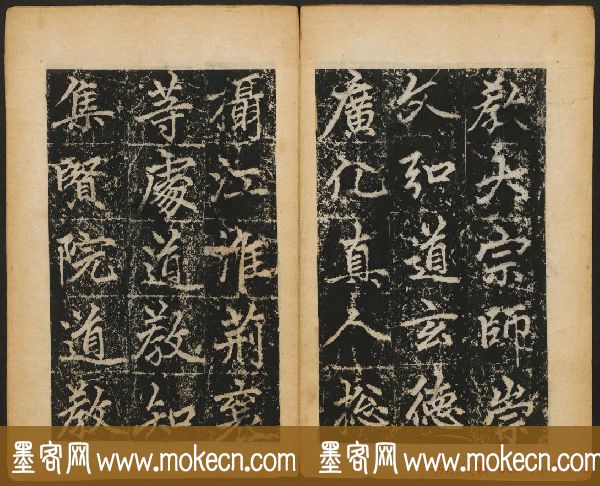 教大宗師崇
文弘道玄德
廣化真人總
攝江淮荊襄
等處道教知
集賢院道教
墨客网 www.mokecn.com
墨客网 www.mokecn.com